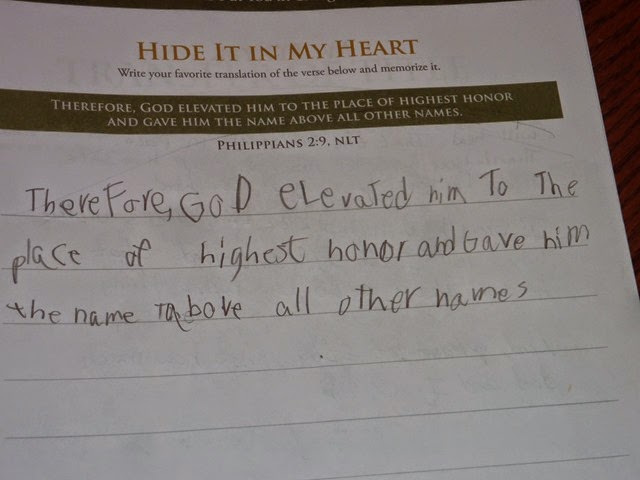 HIDE IT IN MY HEART
Write your favorite translation of the verse below and memorize it.
THEREFORE, GOD ELEVATED HIM TO THE PLACE OF HIGHEST HONOR
AND GAVE HIM THE NAME ABOVE ALL OTHER NAMES.
PHILIPPIANS 2:9, NLT
ThereFore, GOD eLevaTed him To The
place of highest honor and Gave him
the name above all other names